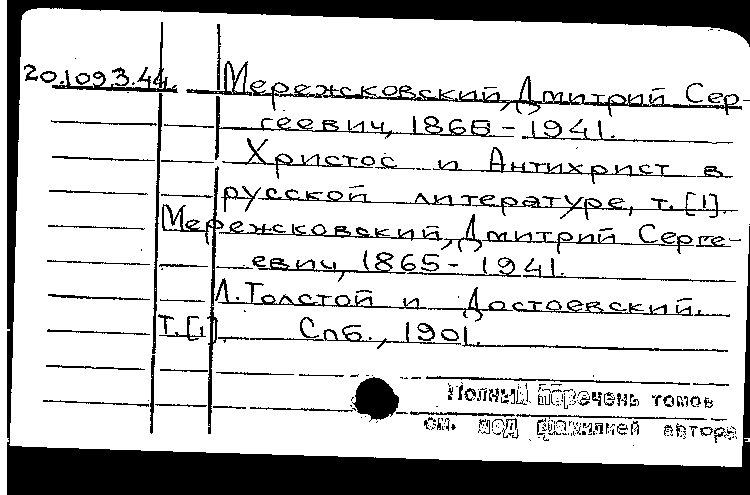 20.109.3.44. Мережсковский, Дмитрий Сер-
геевич, 1865-1941.
Христос и Антихрист в
русской литературе, т. [1].
Мережсковский, Дмитрий Серге-
евич, 1865-1941.
Л. Толстой и Достоевский.
Т. [1]. Спб., 1901.
Полный перечень томов
см. под фамилией автора